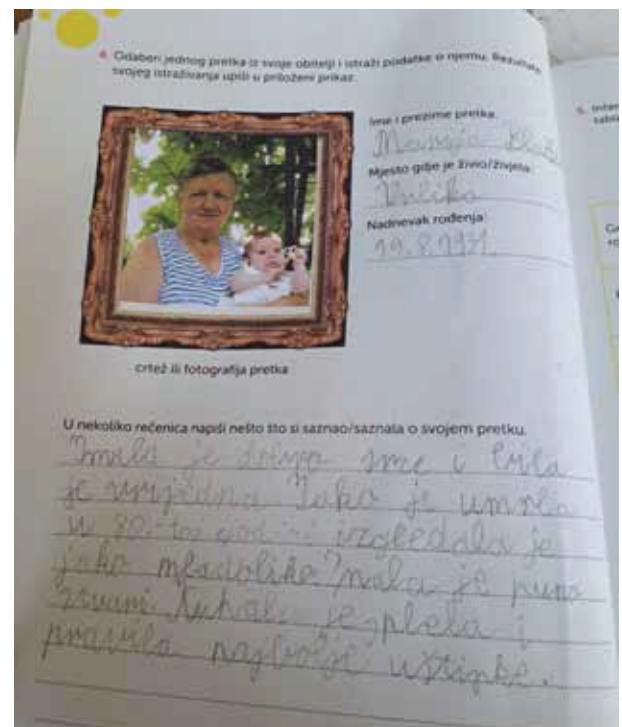 4. Odaberi jednog pretka iz svoje obitelji i istraži podatke o njemu. Rezultate
svojeg istraživanja upiši u priloženi prikaz.
Ime i prezime pretka:
Marija
Mjesto gdje je živio/živjela:
Nadnevak rođenja:
19. 8. 1931.
crtež ili fotografija pretka
U nekoliko rečenica napiši nešto što si saznao/saznala o svojem pretku.
Imala je dva ime i bila
je vrijedna Iako je umrla
u 80-toj godini izgledala je
jako mladolike Imala je puno
Kuhala je, plela i
pravila najbolje uštipke.
5.